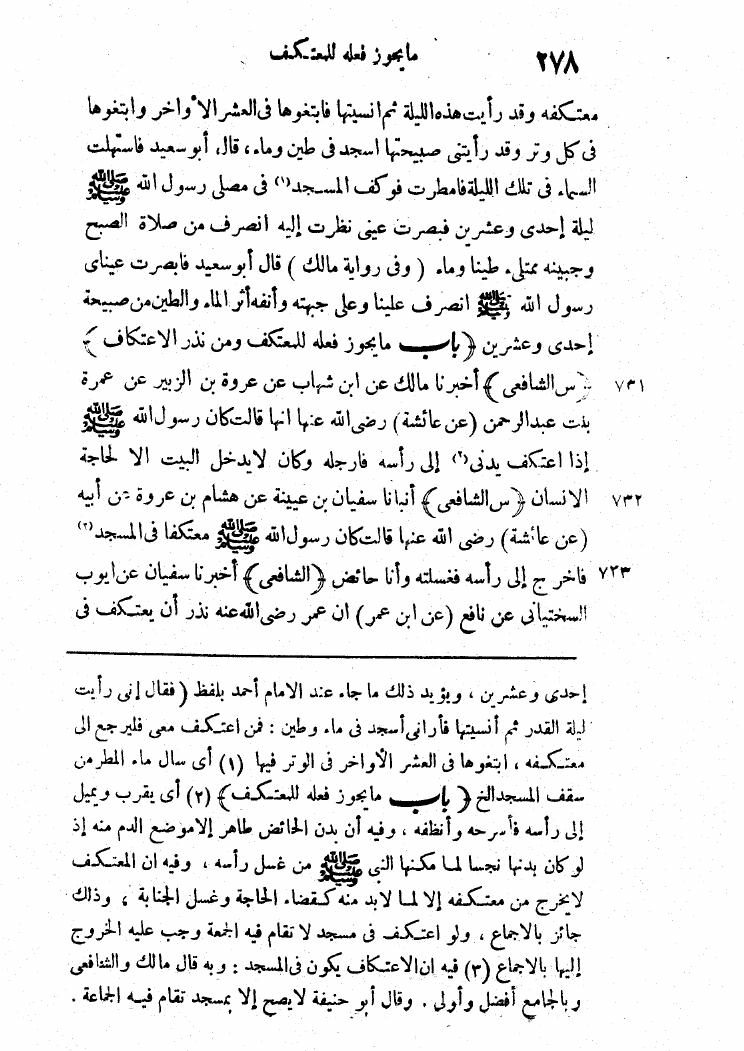 ٢٧٨ ما يجوز فعله للمعتكف
معتكفه وقد رأيت هذه الليلة ثم انسيتها فابتغوها فى العشر الأواخر وابتغوها
فى كل وتر وقد رأيتنى صبيحتها اسجد فى طين وماء، قال، أبو سعيد فاستهلت
السماء فى تلك الليلة فامطرت فوكف المسجد (١) فى مصلى رسول الله ﷺ
ليلة إحدى وعشرين فبصرت عينى نظرت إليه انصرف من صلاة الصبح
وجبينه ممتلىء طينا وماء (وفى رواية مالك) قال أبو سعيد فابصرت عيناى
رسول الله ﷺ انصرف علينا وعلى جبهته وأنفه أثر الماء والطين من صبيحة
إحدى وعشرين ﴿باب ما يجوز فعله للمعتكف ومن نذر الاعتكاف﴾
٧٣١ ﴿س الشافعى﴾ أخبرنا مالك عن ابن شهاب عن عروة بن الزبير عن عمرة
بنت عبدالرحمن (عن عائشة) رضى الله عنها انها قالت كان رسول الله ﷺ
إذا اعتكف يدنى (٢) إلى رأسه فارجله وكان لايدخل البيت الا لحاجة
٧٣٢ الانسان ﴿س الشافعى﴾ أنبانا سفيان بن عيينة عن هشام بن عروة عن أبيه
(عن عائشة) رضى الله عنها قالت كان رسول الله ﷺ معتكفا فى المسجد (٣)
٧٣٣ فاخرج إلى رأسه فغسلته وأنا حائض ﴿الشافعى﴾ أخبرنا سفيان عن ايوب
السختيانى عن نافع (عن ابن عمر) ان عمر رضى الله عنه نذر أن يعتكف فى
إحدى وعشرين، ويؤيد ذلك ما جاء عند الامام أحمد بلفظ (فقال إنى رأيت
ليلة القدر ثم أنسيتها فأرانى أسجد فى ماء وطين : فمن اعتكف معى فليرجع الى
معتكفه، ابتغوها فى العشر الأواخر فى الوتر فيها (١) أى سال ماء المطر من
سقف المسجد الخ ﴿باب ما يجوز فعله للمعتكف﴾ (٢) أى يقرب ويميل
إلى رأسه فأسرحه وأنظفه، وفيه أن بدن الحائض طاهر إلا موضع الدم منه إذ
لو كان بدنها نجسا لما مكنها النبى ﷺ من غسل رأسه، وفيه ان المعتكف
لا يخرج من معتكفه إلا لما لابد منه كقضاء الحاجة وغسل الجنابة، وذلك
جائز بالاجماع، ولو اعتكف فى مسجد لا تقام فيه الجمعة وجب عليه الخروج
إليها بالاجماع (٣) فيه ان الاعتكاف يكون فى المسجد : وبه قال مالك والشافعى
وبالجامع أفضل وأولى. وقال أبو حنيفة لا يصح إلا بمسجد تقام فيه الجماعة.